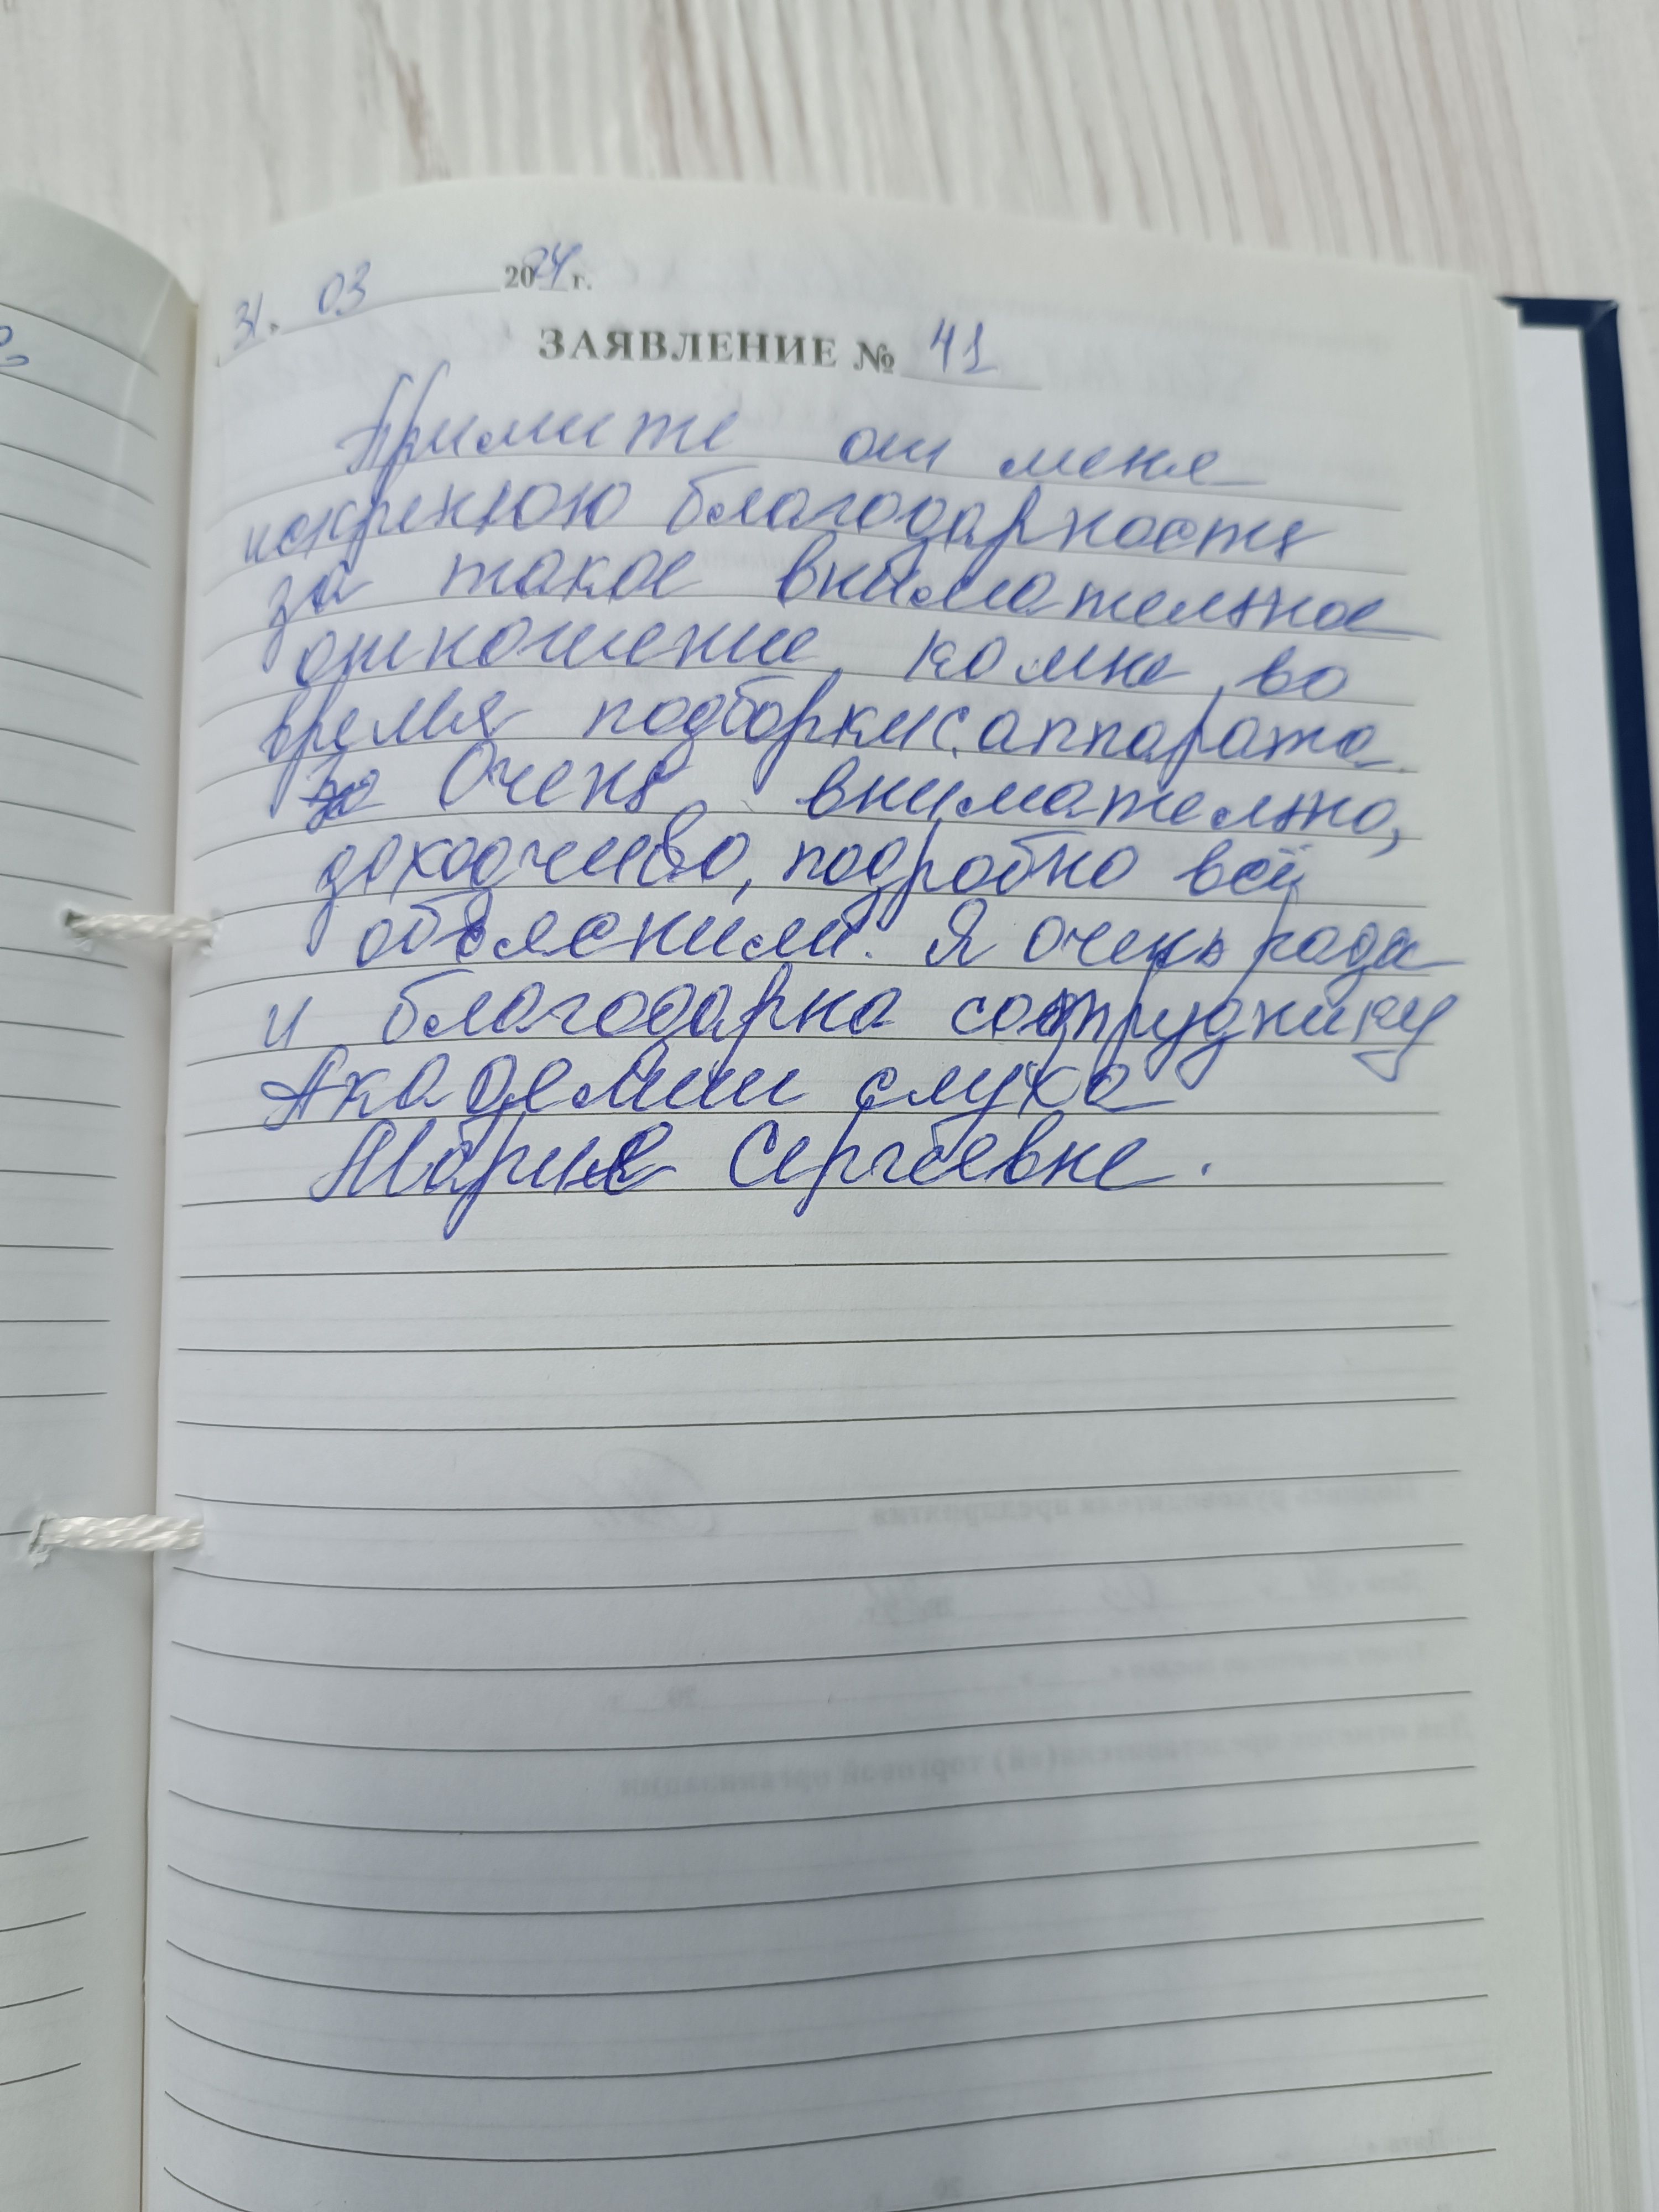 31. 03 2024 г.
ЗАЯВЛЕНИЕ № 41
Примите от меня
искренюю благодарность
за такое внимательное
отношение ко мне, во
время подборки с. аппарата.
Очень внимательно,
доходчиво, подробно всё
объяснили. Я очень рада
и благодарна сотруднику
Академии слуха
Марине Сергеевне.